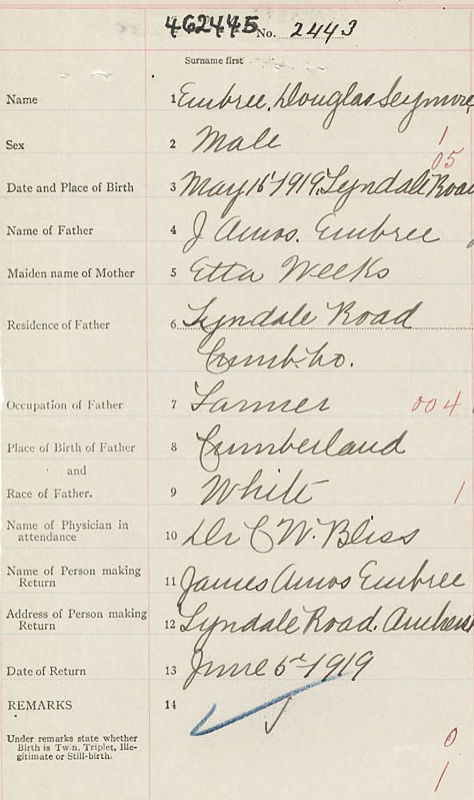 462445 No. 2443
Surname first
Name 1 Embree, Douglas Seymore
Sex 2 Male 1
05
Date and Place of Birth 3 May 15th 1919, Lyndale Road
Name of Father 4 J Amos. Embree
Maiden name of Mother 5 Etta Weeks
Residence of Father 6 Lyndale Road
Cumb. Co.
Occupation of Father 7 Farmer 004
Place of Birth of Father 8 Cumberland
and
Race of Father. 9 White 1
Name of Physician in
attendance 10 Dr C W. Bliss
Name of Person making
Return 11 James Amos Embree
Address of Person making
Return 12 Lyndale Road. Amherst
Date of Return 13 June 5th 1919
REMARKS 14
Under remarks state whether
Birth is Twin, Triplet, Ille-
gitimate or Still-birth.
0
1